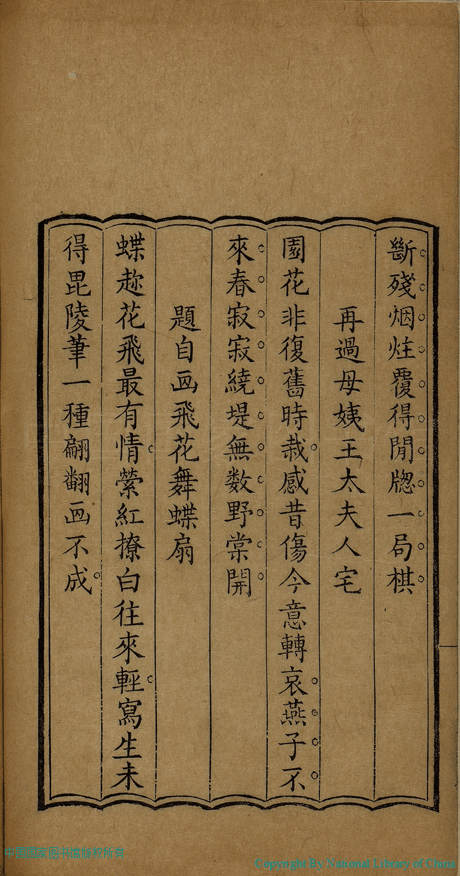 斷殘烟炷覆得閒牕一局棋
再過母姨王太夫人宅
園花非復舊時栽感昔傷今意轉哀燕子不
來春寂寂繞堤無数野棠開
題自画飛花舞蝶扇
蝶趂花飛最有情縈紅撩白往來輕寫生未
得毘陵筆一種翩翻画不成
Copyright By National Library of China